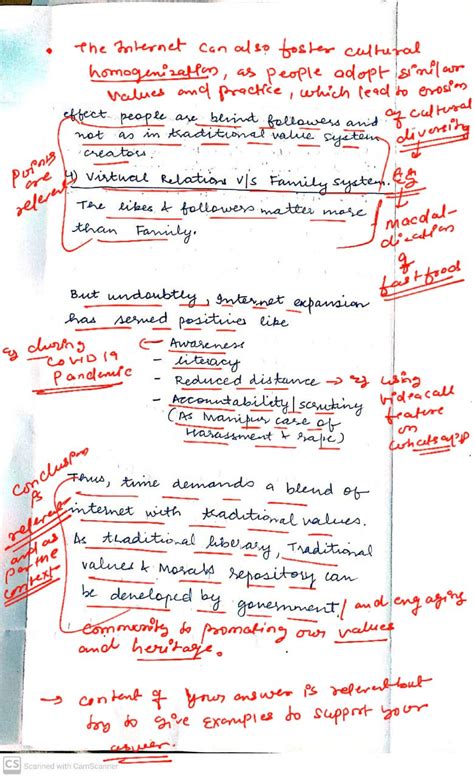 • The Internet can also foster cultural
homogenization, as people adopt similar
values and practice, which lead to erosion
of cultural
diversity
effect people are behind followers and
not as in traditional value system
creators.
Points
are
relevant
4) Virtual Relations V/S Family System.
The likes & followers matter more
than Family.
eg
macdal-
dization
of
fast food
But undoubtly, Internet expansion
has served positives like
eg during
COVID 19
Pandemic
- Awareness
- literacy
- Reduced distance → eg using
videocall
feature
on
whatsapp
- Accountability/scrutiny
(As Manipur case of
Harassment & rape)
conclusion
is
relevant
and as
per the
context
Thus, time demands a blend of
internet with traditional values.
As traditional library, Traditional
values & Morals repository can
be developed by government/ and engaging
community to promoting our values
and heritage.
→ content of your answer is relevant but
try to give examples to support your
answer.
CS Scanned with CamScanner